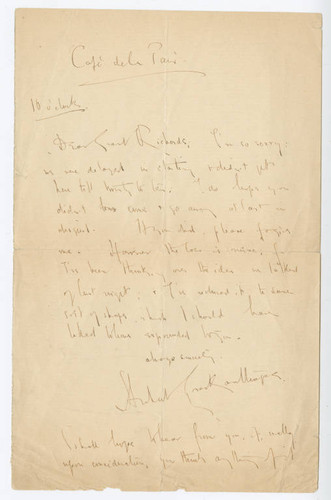 Café de la Paix.
10 o'clock.
Dear Grant Richards, I'm so sorry:
we were delayed in starting, & didn't get
here till twenty to ten. I do hope you
didn't come & go away at last in
disgust. If you did, please forgive
me. However the loss is mine, for
I've been thinking over the idea we talked
of last night. & I've reduced it to some
sort of shape, which I should have
liked to have expounded to you.
always sincerely
Hubert Crackanthorpe.
I shall hope to hear from you, if, really
upon consideration, you think anything of it